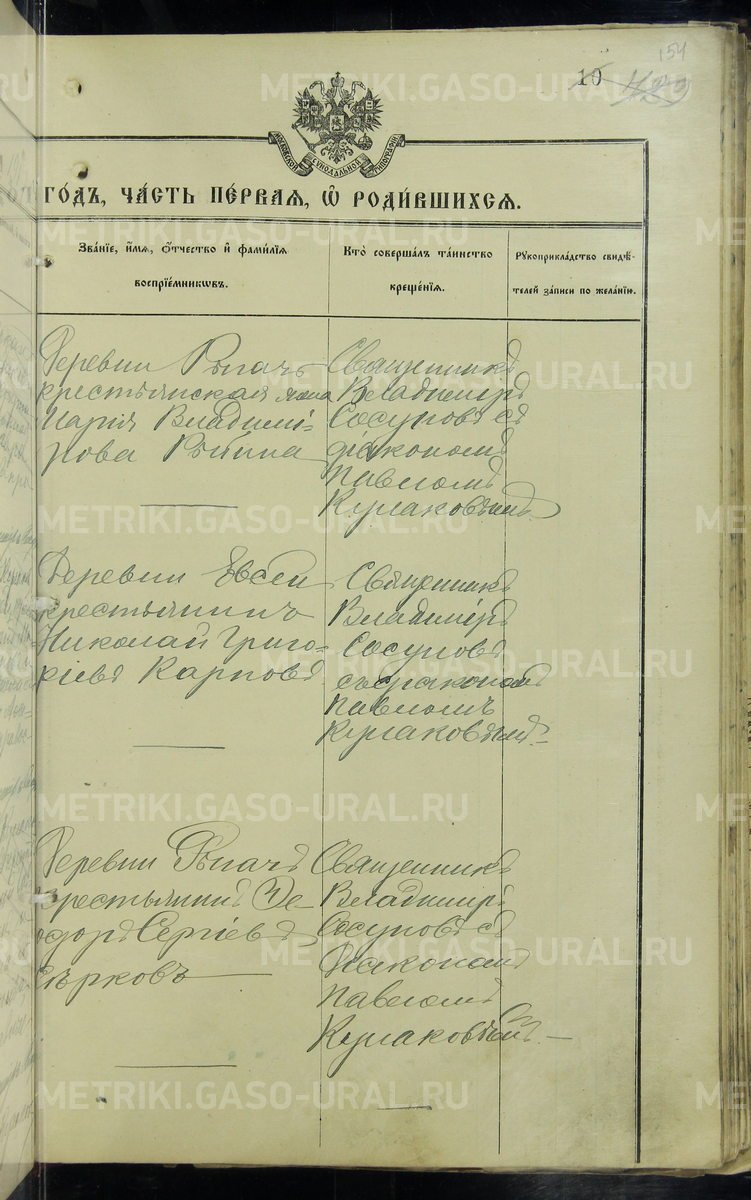 154
10
METRIKI.GASO-URAL.RU
МОСКОВСКОЙ СѴНОДАЛЬНОЙ ТИПОГРАФІИ
ГО́ДЪ, ЧА́СТЬ ПЕ́РВАЯ, Ѡ҆ РОДИ́ВШИХСЯ.
Зва́нїе, и҆́мя, ѻ҆́тчество и҆ фами́лїя
воспрїе́мникѡвъ.
Кто̀ соверша́лъ та́инство
креще́нїя.
Рꙋкоприкла́дство свидѣ́-
телей за́писи по жела́нїю.
Деревни Рычач
крестьянская жена
Марія Владимі-
рова Рыбина
Священникъ
Владиміръ
Сосуновъ съ
діакономъ
Павломъ
Кулаковымъ
Деревни Евсѣи
крестьянинъ
Николай Григо-
ріевъ Карповъ
Священникъ
Владиміръ
Сосуновъ
съ діакономъ
Павломъ
Кулаковымъ
Деревни
крестьянинъ Ѳе-
одоръ Сергіевъ
Священникъ
Владиміръ
Сосуновъ съ
Діакономъ
Павломъ
Кулаковымъ